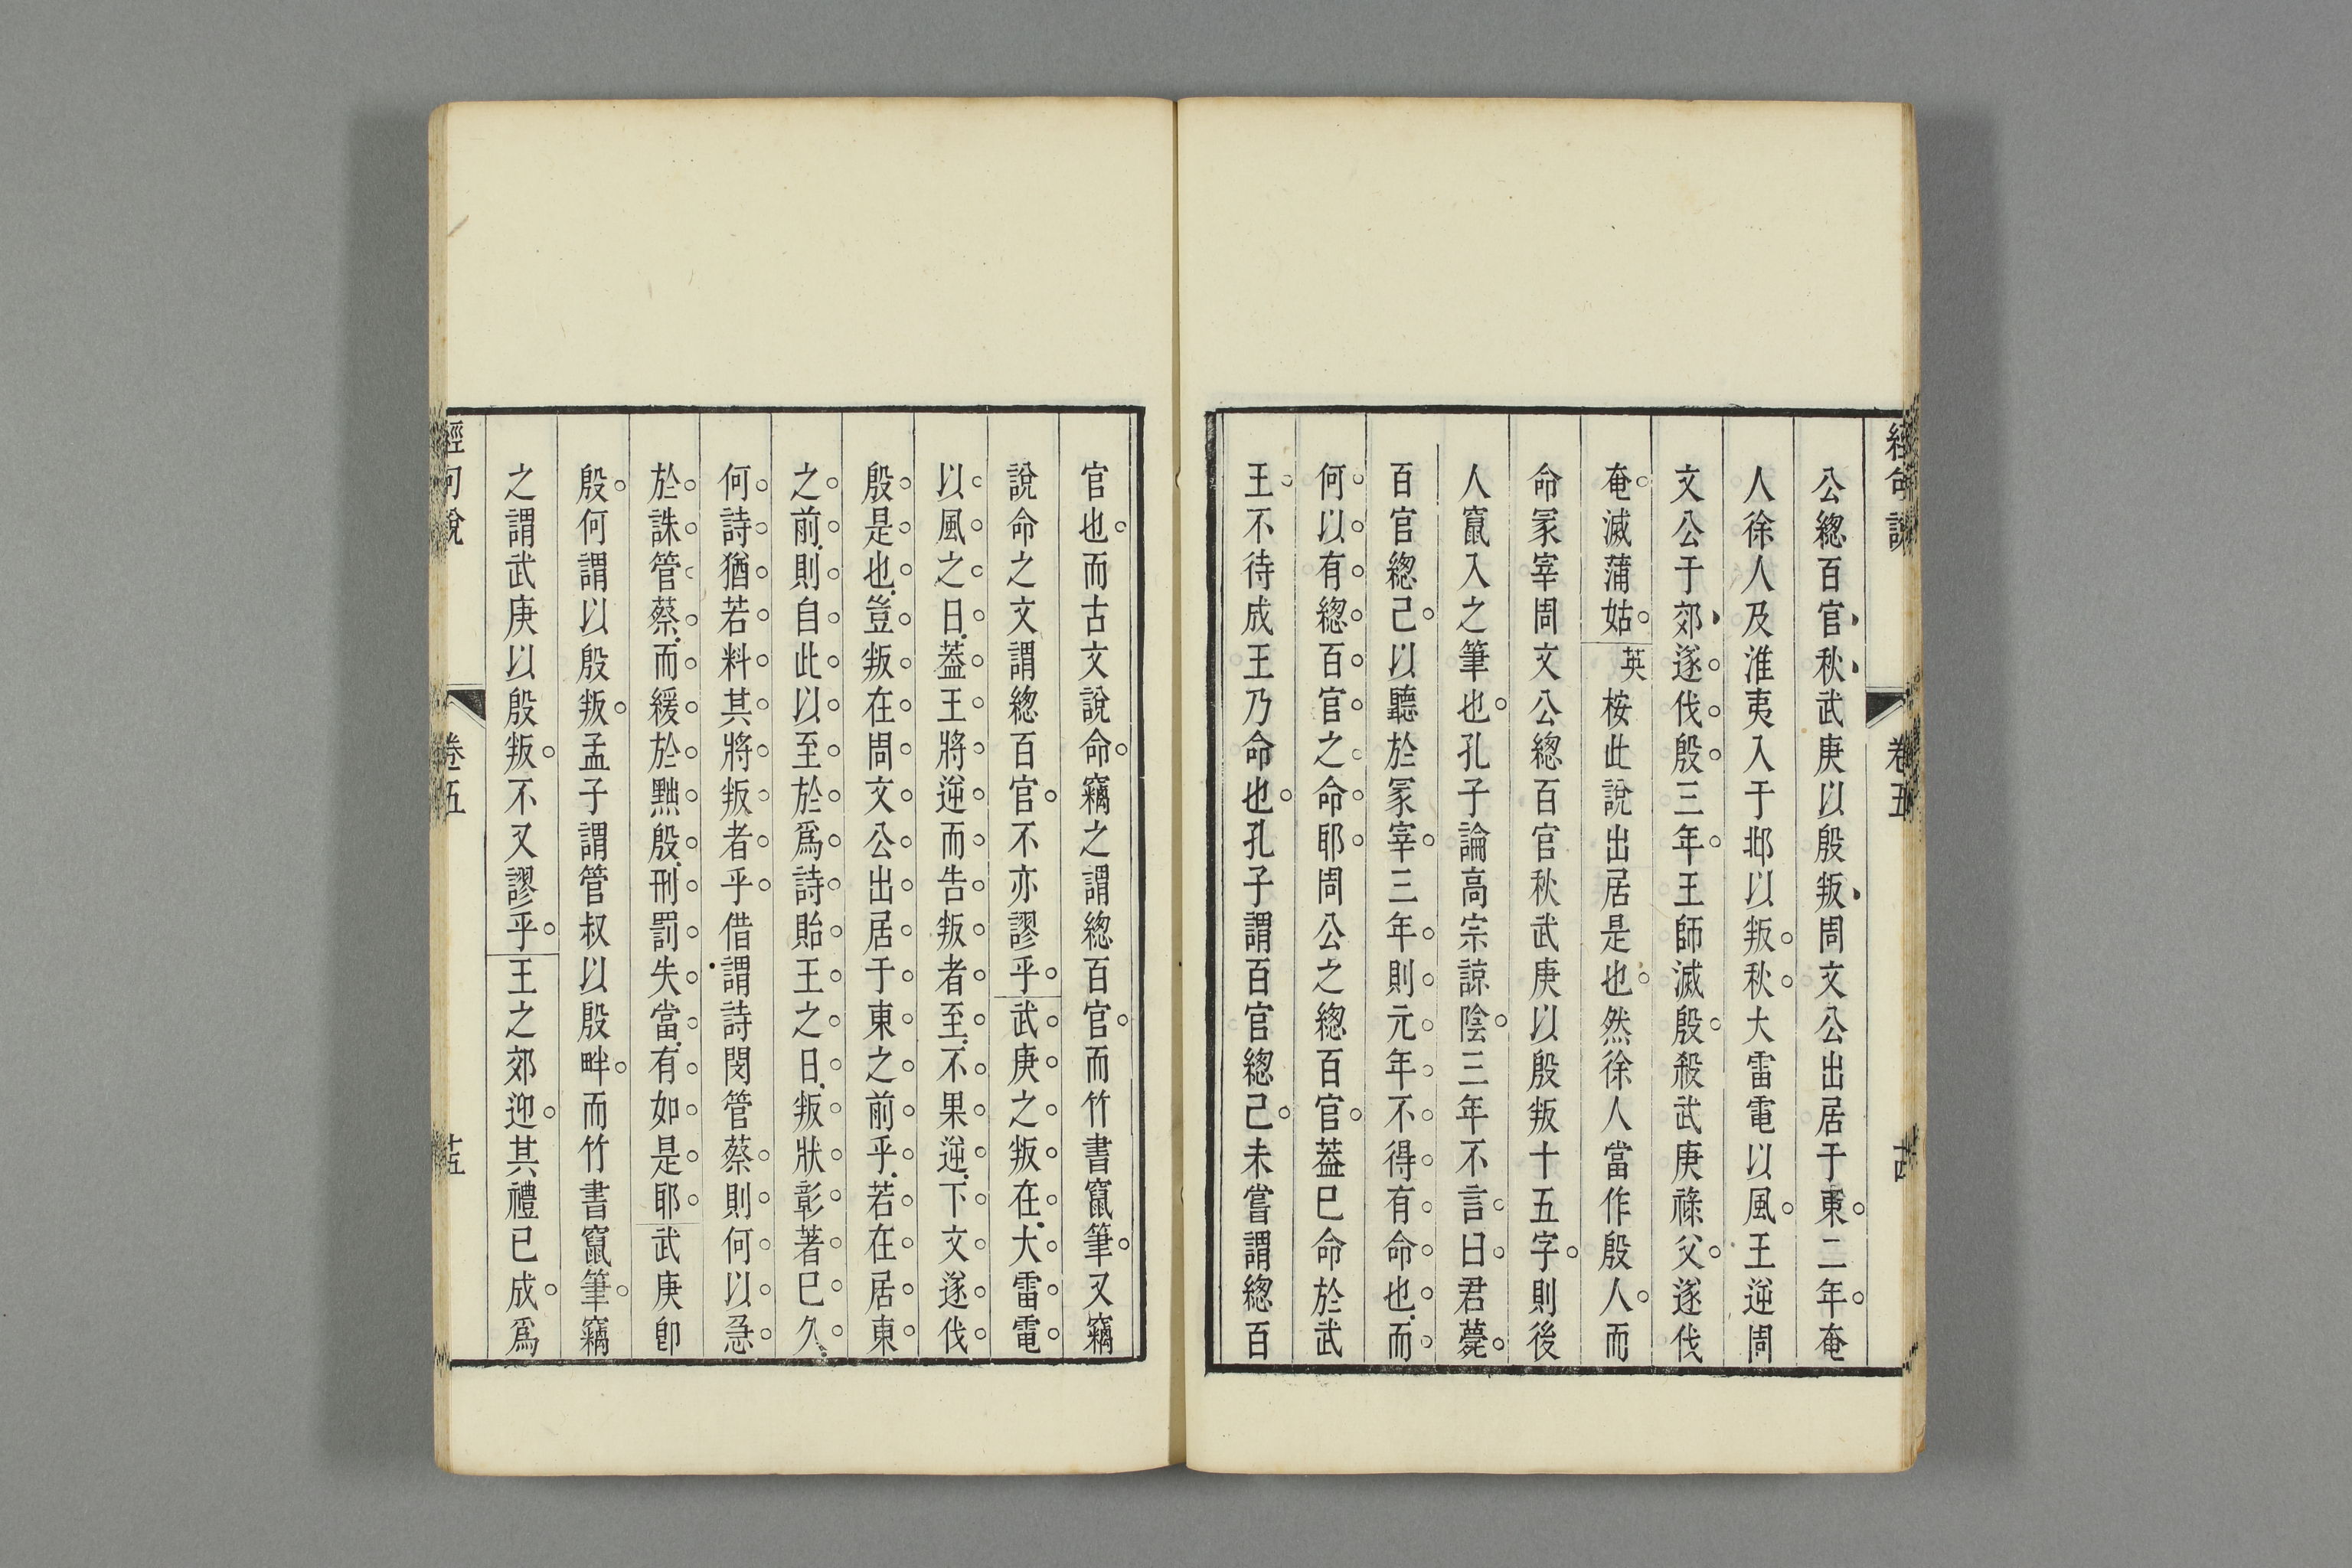 經句說
卷五
公緫百官秋武庚以殷叛周文公出居于東二年奄
人徐人及淮夷入于邶以叛秋大雷電以風王逆周
文公于郊遂伐殷三年王師滅殷殺武庚祿父遂伐
奄滅蒲姑英桉此說出居是也然徐人當作殷人而
命冢宰周文公緫百官秋武庚以殷叛十五字則後
人竄入之筆也孔子論高宗諒陰三年不言曰君薨
百官緫己以聽於冢宰三年則元年不得有命也而
何以有緫百官之命耶周公之緫百官葢巳命於武
王不待成王乃命也孔子謂百官緫己未嘗謂緫百
官也而古文說命竊之謂緫百官而竹書竄筆又竊
說命之文謂緫百官不亦謬乎武庚之叛在大雷電
以風之日葢王將逆而告叛者至不果逆下文遂伐
殷是也豈叛在周文公出居于東之前乎若在居東
之前則自此以至於爲詩貽王之日叛狀彰著巳久
何詩猶若料其將叛者乎借謂詩閔管蔡則何以急
於誅管蔡而緩於黜殷刑罰失當有如是耶武庚卽
殷何謂以殷叛孟子謂管叔以殷畔而竹書竄筆竊
之謂武庚以殷叛不又謬乎王之郊迎其禮已成爲
經句說
卷五